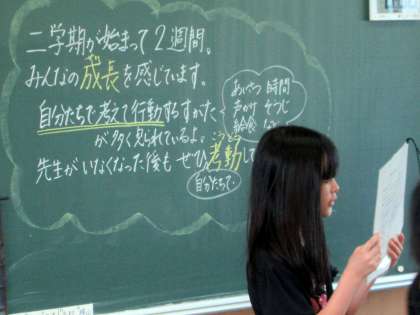 二学期が始まって2週間。
みんなの成長を感じています。
自分たちで考えて行動するすがた
が多く見られているよ。
先生がいなくなった後も ぜひ考動して
こうどう
自分たちで
あいさつ 時間
声かけ そうじ
給食